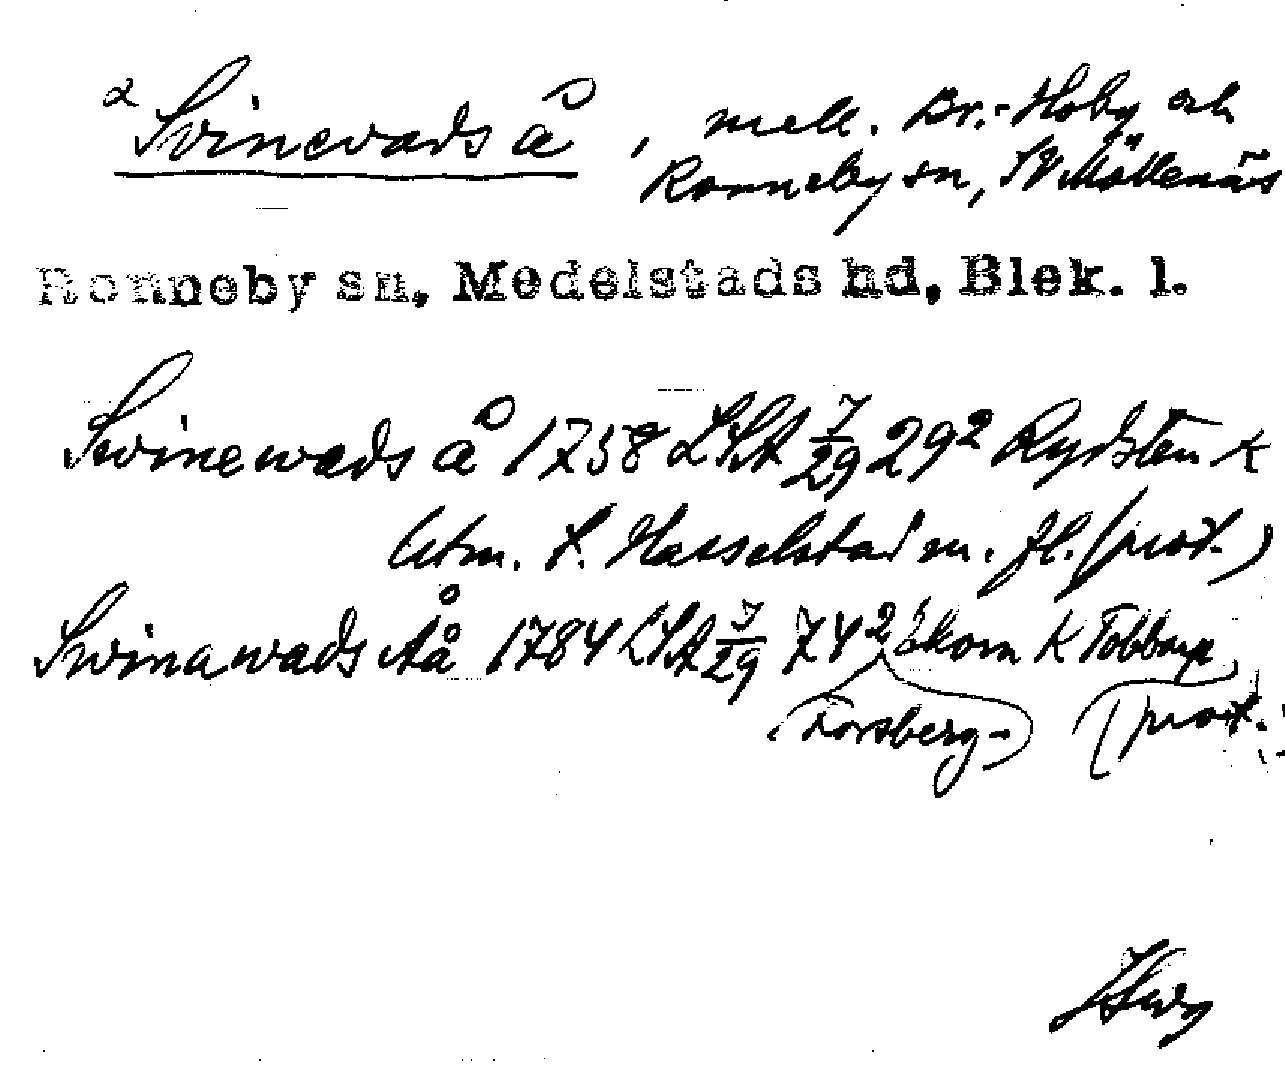 α Svinevads å, mell. Br.-Hoby och
Ronneby sn, SV Möllenäs
Ronneby sn, Medelstads hd, Blek. l.
Swinewads å 1758 LSA 7/29 29² Rydsten K
Utm. t. Hasselstad m. fl. (prot.)
Swinawads Åå 1784 LSA 7/29 74² K Tobbarp
(Forsberg) (prot.)